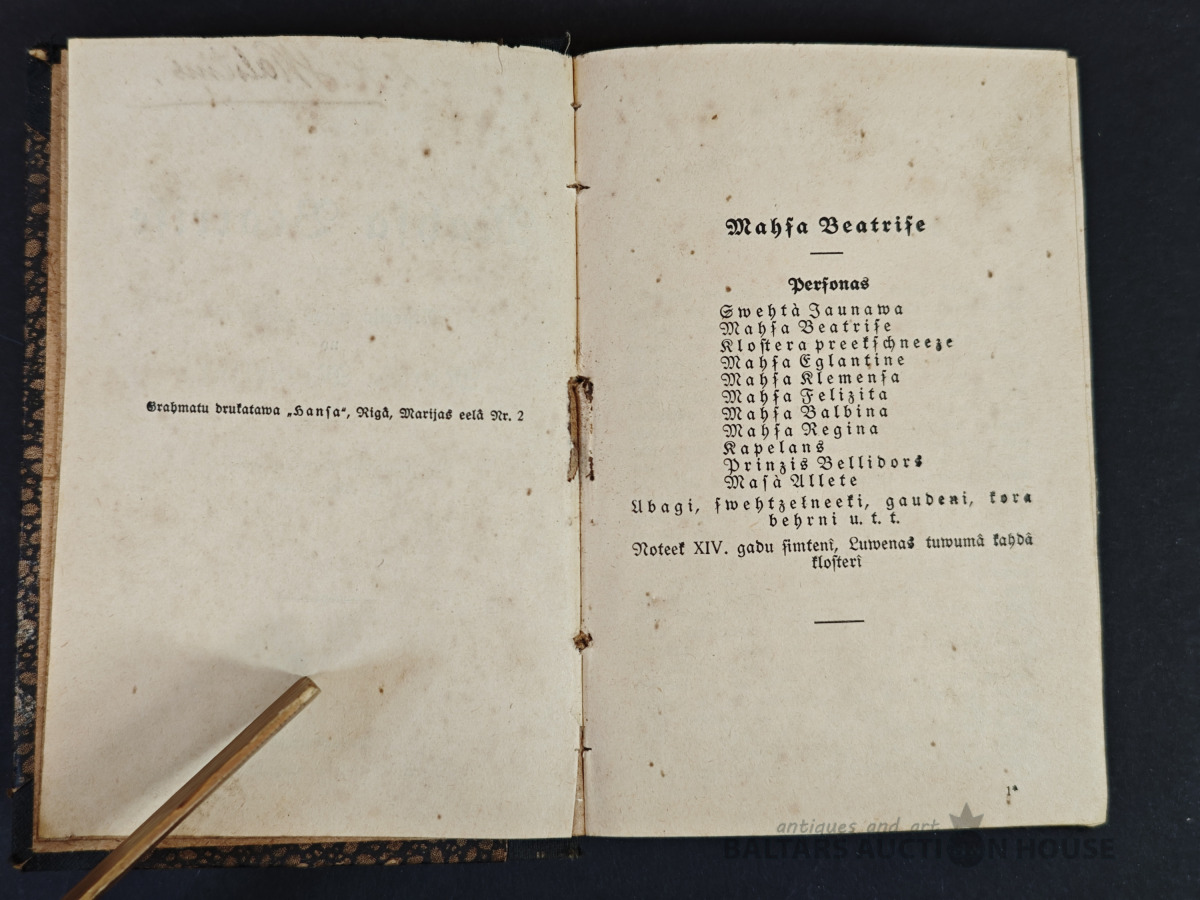 Grahmatu drukatawa „Hanſa“, Rigâ, Marijas eelâ Nr. 2
Mahſa Beatriſe
Perſonas
Swehtà Jaunawa
Mahſa Beatriſe
Kloſtera preekſchneeze
Mahſa Eglantine
Mahſa Klemenſa
Mahſa Felizita
Mahſa Balbina
Mahſa Regina
Kapelans
Prinzis Bellidors
Maſà Allete
Ubagi, ſwehtzełneeki, gaudeni, kora
behrni u. t. t.
Noteek XIV. gadu ſimtenî, Luwenas tuwumâ kahdâ
kloſterî
1*
antiques and art
BALTARS AUCTION HOUSE